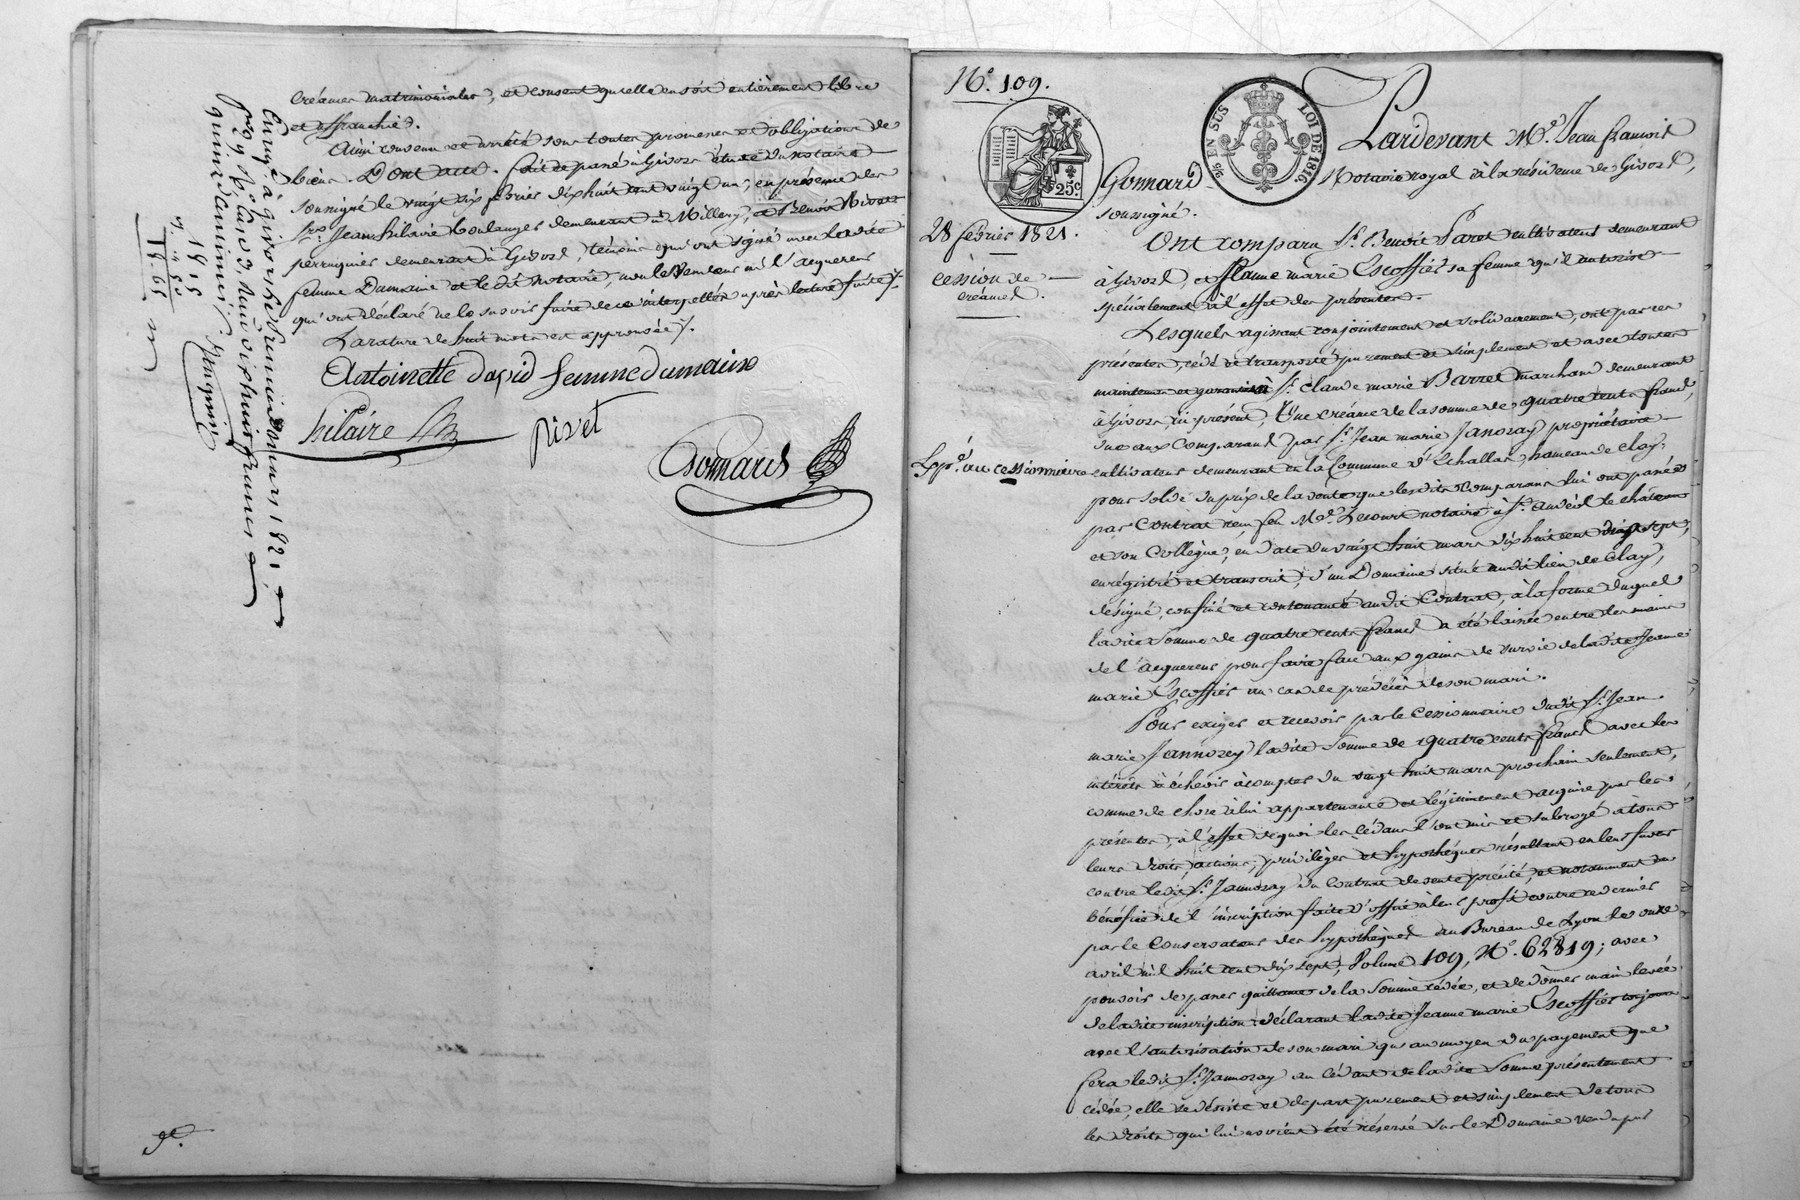 créances matrimoniales, et consent qu'elle en soit entièrement libre
et affranchie.
Ainsi convenu et arrêté sous toutes promesses et obligations de
biens. Dont acte. fait et passé à Givors étude du notaire
soussigné le vingt six février dix huit cent vingt un, en présence des
srs. Jean hilaire boulanger demeurant à Millery, et Benoit Rivet
perruquier demeurant à Givors, témoins qui ont signé avec la dite
femme Dumaine et le dit notaire, non les vendeurs ni l'acquereur
qui ont déclaré ne le savoir faire de ce interpellés après lecture faite/.
La rature de huit mots est approuvée/.
Antoinette david femme dumaine
hilaire
rivet
Gonnard
Enregé à givors le deux mars 1821,
fo 99 Ro Cases, Reçu dix huit francs
quinze centimes.
18.15
1.50
19.65
N.o 109.
25.c
9/6 EN SUS
LOI DE 1816
Pardevant M.e Jean francois
Gonnard Notaire royal à la résidence de Givors,
soussigné.
28 février 1821.
Cession de
créances.
Ont comparu S.r Benoit Paret cultivateur demeurant
à Givors, et Jeanne marie Escoffier sa femme qu'il autorise
spécialement à l'effet des présentes.
Lesquels agissant conjointement et solidairement, ont par ces
présentes, cédé et transporté purement et simplement et avec toutes
maintenue et garantie à S.r Claude marie Barret marchand demeurant
à Givors ici présent, Une créance de la somme de quatre cents francs,
due aux Comparans par S.r Jean marie Janoray propriétaire
Exp.é au cessionnaire
cultivateur demeurant en la Commune d'Echallas, hameau de Clay,
pour solde du prix de la vente que les dits Comparans lui ont passée
par Contrat reçu feu M.e Lecourt notaire à S.t andéol le château
et son Collègue, en date du vingt huit mars dix huit cent dix sept,
enregistré et transcrit, d'un Domaine situé au dit lieu de Clay,
désigné, confiné et contenancé au dit Contrat, à la forme duquel
la dite somme de quatre cents francs a été laissée entre les mains
de l'acquereur pour faire face aux gains de survie de la dite Jeanne
marie Escoffier au cas de prédécès de son mari.
Pour exiger et recevoir par le Cessionnaire dudit S.r Jean
marie Jannoray la dite somme de quatre cents francs avec les
intérêts à échéoir à compter du vingt huit mars prochain seulement,
comme de chose à lui appartenante et légitimement acquise par les
présentes, à l'effet de quoi les cédans l'ont mis et subrogé à tous
leurs droits, actions, privilèges et hypothèques résultant en leur faveur
contre le dit S.r Jannoray du contrat de vente précité, et notamment au
bénéfice de l'inscription faite d'office à leur profit contre ce dernier
par le Conservateur des hypothèques au Bureau de Lyon le onze
avril mil huit cent dix sept, Volume 109, N.o 62819; avec
pouvoir de passer quittance de la somme cédée, et de donner main levée
de la dite inscription; déclarant la dite Jeanne marie Escoffier toujours
avec l'autorisation de son mari qu'au moyen du payement que
fera le dit S.r Jannoray au cédant de la dite somme présentement
cédée, elle se désiste et départ purement et simplement de tous
les droits qui lui avoient été réservés sur le Domaine vendu par